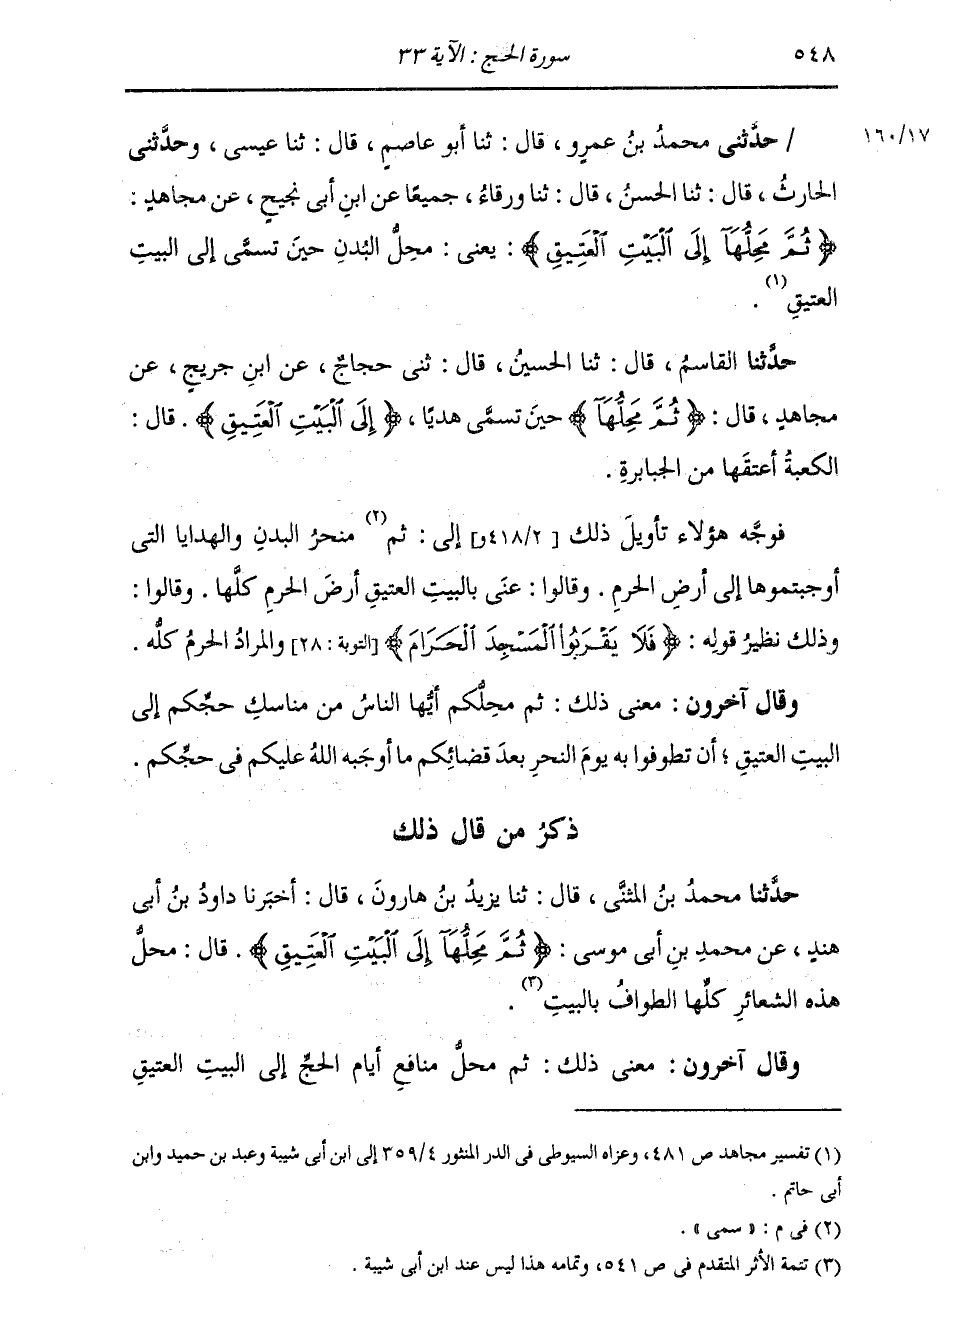 ٥٤٨ سورة الحج : الآية ٣٣
١٦٠/١٧ / حدَّثنى محمدُ بنُ عمرٍو ، قال : ثنا أبو عاصمٍ ، قال : ثنا عيسى ، وحدَّثنى
الحارثُ ، قال : ثنا الحسنُ ، قال : ثنا ورقاءُ ، جميعًا عن ابنِ أبى نجيحٍ ، عن مجاهدٍ :
﴿ ثُمَّ مَحِلُّهَآ إِلَى ٱلْبَيْتِ ٱلْعَتِيقِ ﴾ : يعنى : محِلُّ البُدنِ حينَ تسمَّى إلى البيتِ
العتيقِ (١) .
حدَّثنا القاسمُ ، قال : ثنا الحسينُ ، قال : ثنى حجاجٌ ، عن ابنِ جريجٍ ، عن
مجاهدٍ ، قال : ﴿ ثُمَّ مَحِلُّهَآ ﴾ حينَ تسمَّى هديًا ، ﴿ إِلَى ٱلْبَيْتِ ٱلْعَتِيقِ ﴾ . قال :
الكعبةُ أعتقَها من الجبابرةِ .
فوجَّه هؤلاء تأويلَ ذلك [ ٤١٨/٢و] إلى : ثم (٢) منحرُ البدنِ والهدايا التى
أوجبتموها إلى أرضِ الحرمِ . وقالوا : عنَى بالبيتِ العتيقِ أرضَ الحرمِ كلَّها . وقالوا :
وذلك نظيرُ قولِه : ﴿ فَلَا يَقْرَبُوا۟ ٱلْمَسْجِدَ ٱلْحَرَامَ ﴾ [التوبة : ٢٨] والمرادُ الحرمُ كلُّه .
وقال آخرون : معنى ذلك : ثم محِلُّكم أيُّها الناسُ من مناسكِ حجِّكم إلى
البيتِ العتيقِ ؛ أن تطوفوا به يومَ النحرِ بعدَ قضائِكم ما أوجَبه اللهُ عليكم فى حجِّكم .
ذكرُ من قال ذلك
حدَّثنا محمدُ بنُ المثنَّى ، قال : ثنا يزيدُ بنُ هارونَ ، قال : أخبَرنا داودُ بنُ أبى
هندٍ ، عن محمدِ بنِ أبى موسى : ﴿ ثُمَّ مَحِلُّهَآ إِلَى ٱلْبَيْتِ ٱلْعَتِيقِ ﴾ . قال : محلُّ
هذه الشعائرِ كلِّها الطوافُ بالبيتِ (٣) .
وقال آخرون : معنى ذلك : ثم محلُّ منافعِ أيامِ الحجِّ إلى البيتِ العتيقِ
(١) تفسير مجاهد ص ٤٨١، وعزاه السيوطى فى الدر المنثور ٣٥٩/٤ إلى ابن أبى شيبة وعبد بن حميد وابن
أبى حاتم .
(٢) فى م : « سمى » .
(٣) تتمة الأثر المتقدم فى ص ٥٤١، وتمامه هذا ليس عند ابن أبى شيبة .